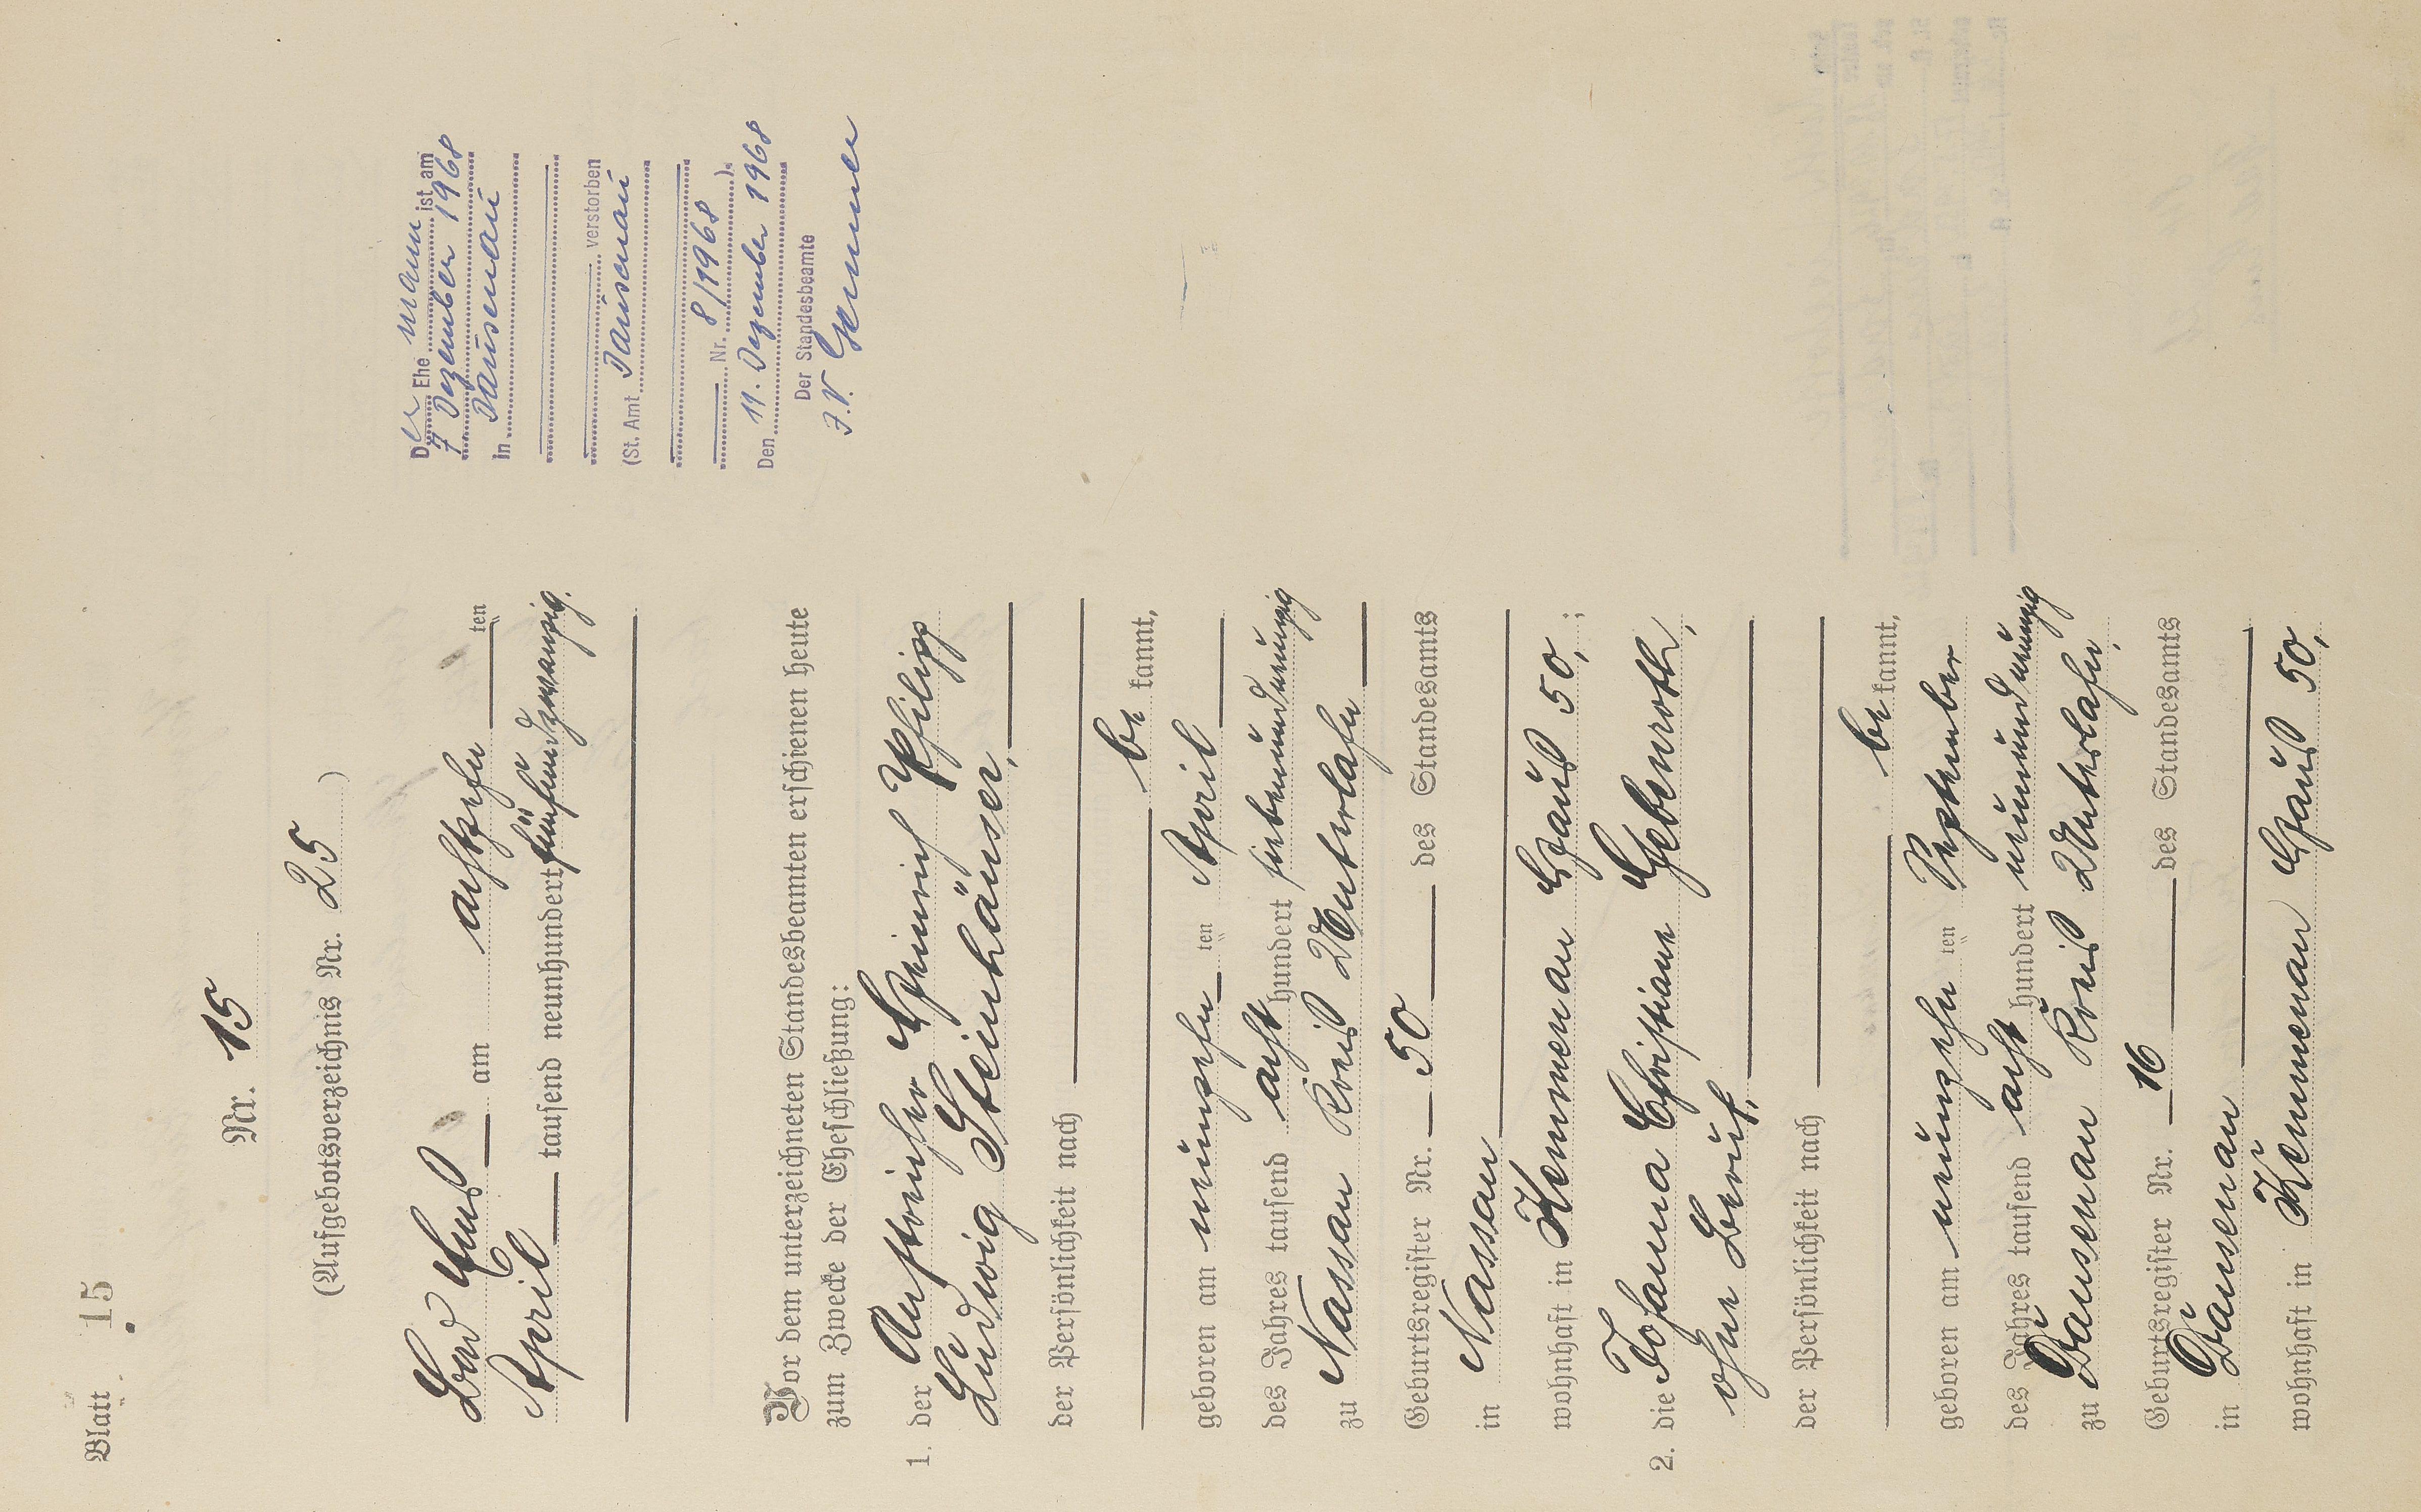 Blatt 15
Nr. 15
(Aufgebotsverzeichnis Nr. 25)
Bad Ems am achtzehn ten
April tausend neunhundert fünfundzwanzig.
Der Ehe mann ist am
7 Dezember 1968
In Dausenau
verstorben
(St. Amt Dausenau
Nr. 8/1968).
Den 11. Dezember 1968
Der Standesbeamte
J.V.
Vor dem unterzeichneten Standesbeamten erschienen heute
zum Zwecke der Eheschließung:
1. der Anstreicher Heinrich Philipp
Ludwig Steinhäuser,
der Persönlichkeit nach
be kannt,
geboren am neunzehn ten April
des Jahres tausend acht hundert siebenundneunzig
zu Nassau Kreis Unterlahn
Geburtsregister Nr. 50 des Standesamts
in Nassau
wohnhaft in Kemmenau Haus 50, ;
2. die Johanna Christiane Gebenroth,
ohne Beruf,
der Persönlichkeit nach
be kannt,
geboren am neunzehn ten September
des Jahres tausend acht hundert neunundneunzig
zu Dausenau Kreis Unterlahn,
Geburtsregister Nr. 16 des Standesamts
in Dausenau
wohnhaft in Kemmenau Haus 50,